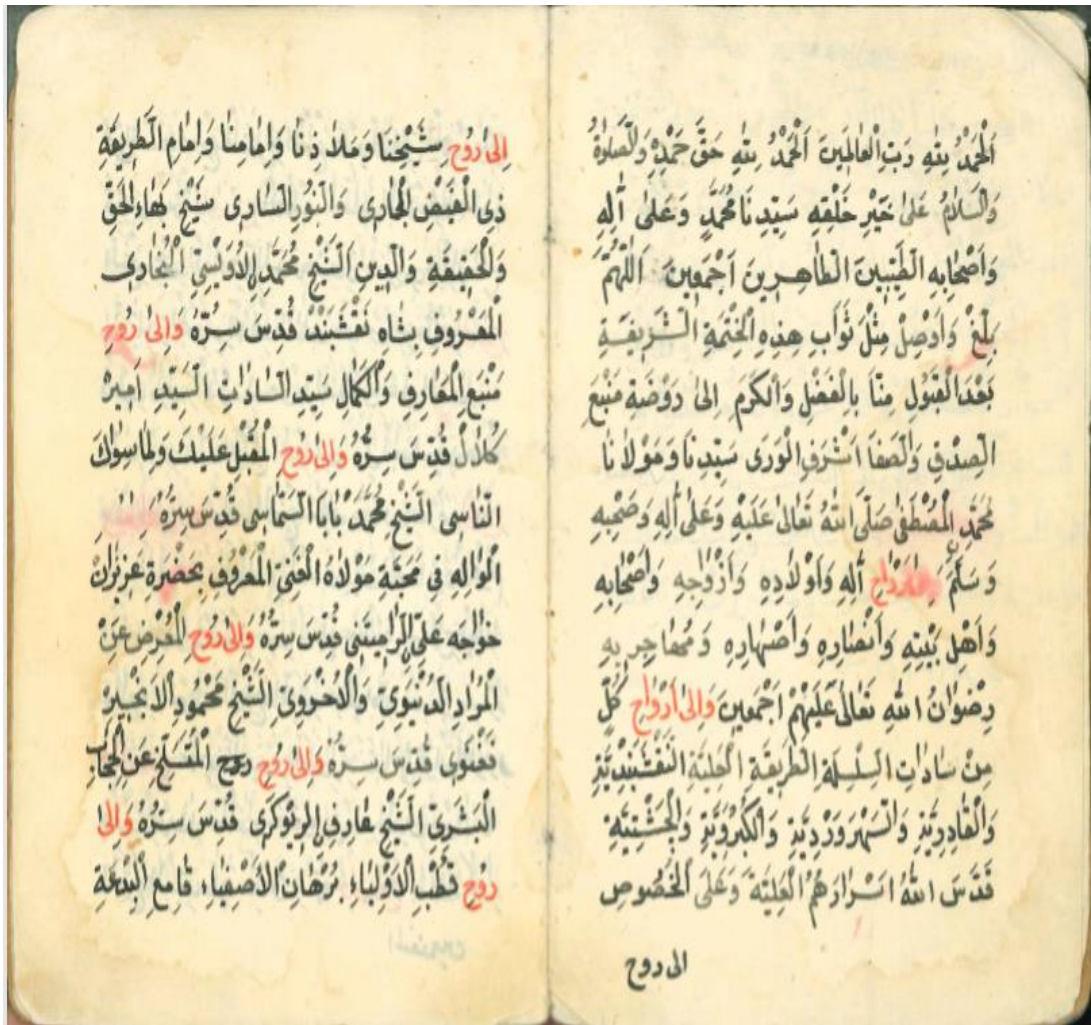 اَلْحَمْدُ لِلّٰهِ رَبِّ الْعَالَمِينَ اَلْحَمْدُ لِلّٰهِ حَقَّ حَمْدِهِ وَالصَّلٰوةُ
وَالسَّلَامُ عَلٰى خَيْرِ خَلْقِهِ سَيِّدِنَا مُحَمَّدٍ وَعَلٰى اٰلِهِ
وَاَصْحَابِهِ الطَّيِّبِينَ الطَّاهِرِينَ اَجْمَعِينَ اَللّٰهُمَّ
بَلِّغْ وَاَوْصِلْ مِثْلَ ثَوَابِ هٰذِهِ الْخَتْمَةِ الشَّرِيفَةِ
بَعْدَ الْقَبُولِ مِنَّا بِالْفَضْلِ وَالْكَرَمِ اِلٰى رَوْضَةِ مَنْبَعِ
الصِّدْقِ وَالصَّفَا اَشْرَفِ الْوَرٰى سَيِّدِنَا وَمَوْلَانَا
مُحَمَّدٍ الْمُصْطَفٰى صَلَّى اللّٰهُ تَعَالٰى عَلَيْهِ وَعَلٰى اٰلِهِ وَصَحْبِهِ
وَسَلَّمَ اٰلِهِ وَاَوْلَادِهِ وَاَزْوَاجِهِ وَاَصْحَابِهِ
وَاَهْلِ بَيْتِهِ وَاَنْصَارِهِ وَاَصْهَارِهِ وَمُهَاجِرِيهِ
رِضْوَانُ اللّٰهِ تَعَالٰى عَلَيْهِمْ اَجْمَعِينَ وَاِلٰى اَرْوَاحِ كُلٍّ
مِنْ سَادَاتِ السِّلْسِلَةِ الطَّرِيقَةِ الْعَلِيَّةِ النَّقْشَبَنْدِيَّةِ
وَالْقَادِرِيَّةِ وَالسَّهْرَوَرْدِيَّةِ وَالْكُبْرَوِيَّةِ وَالْجِشْتِيَّةِ
قَدَّسَ اللّٰهُ اَسْرَارَهُمُ الْعَلِيَّةَ وَعَلَى الْخُصُوصِ
الى روح
اِلٰى رُوحِ شَيْخِنَا وَمَلَاذِنَا وَاِمَامِنَا وَاِمَامِ الطَّرِيقَةِ
ذِى الْفَيْضِ الْجَارِى وَالنُّورِ السَّارِى شَيْخِ بَهَاءِ الْحَقِّ
وَالْحَقِيقَةِ وَالدِّينِ الشَّيْخِ مُحَمَّدٍ الْاُوَيْسِىِّ الْبُخَارِى
الْمَعْرُوفِ بِشَاهِ نَقْشَبَنْدْ قُدِّسَ سِرُّهُ وَاِلٰى رُوحِ
مَنْبَعِ الْمَعَارِفِ وَالْكَمَالِ سَيِّدِ السَّادَاتِ السَّيِّدِ اَمِيرْ
كُلَالْ قُدِّسَ سِرُّهُ وَاِلٰى رُوحِ الْمُقْبِلِ عَلَيْكَ وَلِمَا سِوَاكَ
النَّاسِى الشَّيْخِ مُحَمَّدْ بَابَا السَّمَّاسِى قُدِّسَ سِرُّهُ
الْوَالِهِ فِى مَحَبَّةِ مَوْلَاهُ الْغَنِىِّ الْمَعْرُوفِ بِحَضْرَةِ عَزِيزَانْ
خَوَاجَه عَلِىٍّ الرَّامِيتَنِى قُدِّسَ سِرُّهُ وَاِلٰى رُوحِ الْمُعْرِضِ عَنْ
الْمُرَادِ الدُّنْيَوِىِّ وَالْاُخْرَوِىِّ الشَّيْخِ مَحْمُودٍ الْاَنْجِيرْ
فَغْنَوِى قُدِّسَ سِرُّهُ وَاِلٰى رُوحِ روح الْمُنْسَلِخِ عَنِ الْحِجَابِ
الْبَشَرِىِّ الشَّيْخِ عَارِفٍ الرِّيوْكَرِى قُدِّسَ سِرُّهُ وَاِلٰى
رُوحِ قُطْبِ الْاَوْلِيَاءِ بُرْهَانِ الْاَصْفِيَاءِ قَامِعِ الْبِدْعَةِ